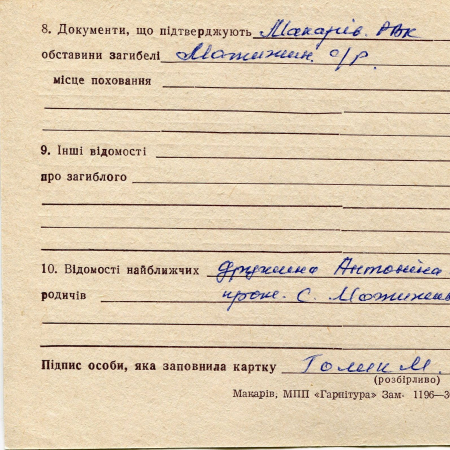 8. Документи, що підтверджують Макарів. РВК
обставини загибелі Мотижин. с/р.
місце поховання
9. Інші відомості
про загиблого
10. Відомості найближчих дружина Антоніна
родичів прож. с. Мотижин
Підпис особи, яка заповнила картку Голик М.
(розбірливо)
Макарів, МПП «Гарнітура» Зам. 1196—3